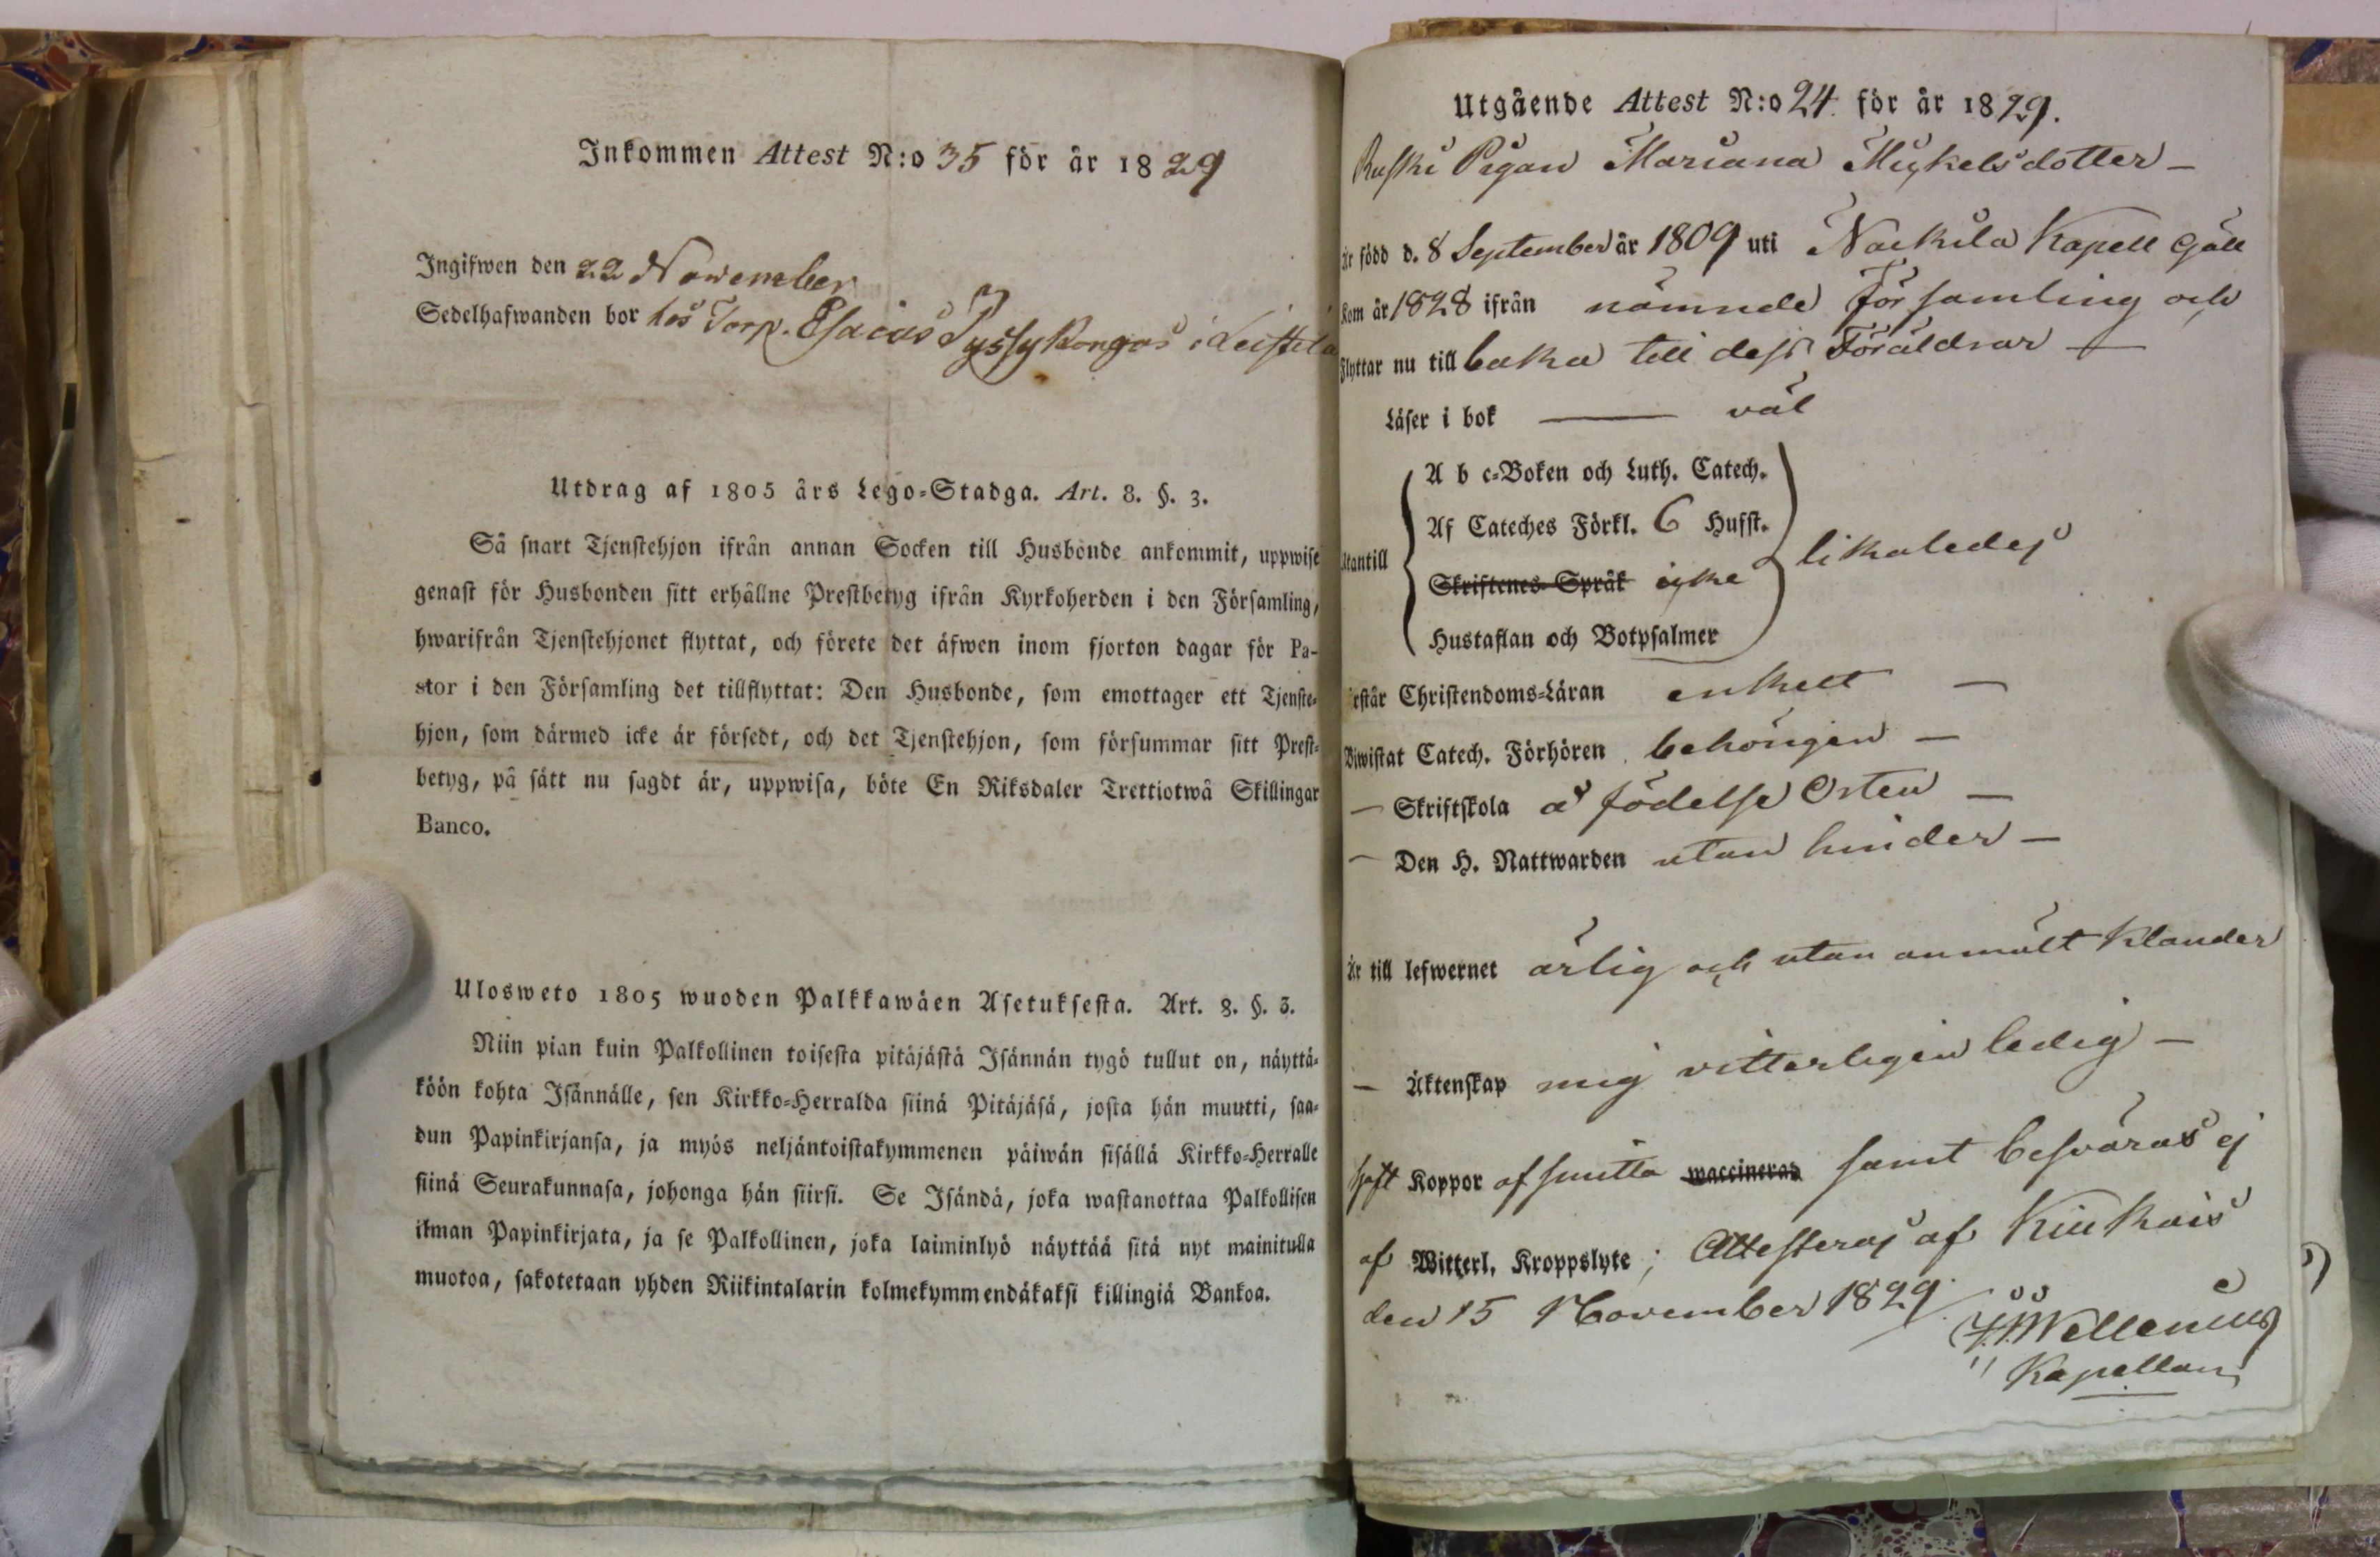 Inkommen Attest N:o 35 för år 1829
Ingifwen den 22 November
Sedelhafwanden bor hos Torp. Esaias Pyssykangas i Leistilä
Utdrag af 1805 års Lego-Stadga. Art. 8. §. 3.
Så snart Tjenstehjon ifrån annan Socken till Husbonde ankommit, uppwise
genast för Husbonden sitt erhållne Prestbetyg ifrån Kyrkoherden i den Församling,
hwarifrån Tjenstehjonet flyttat, och förete det äfwen inom fjorton dagar för Pa-
stor i den Församling det tillflyttat: Den Husbonde, som emottager ett Tjenste-
hjon, som därmed icke är försedt, och det Tjenstehjon, som försummar sitt Prest-
betyg, på sätt nu sagdt är, uppwisa, böte En Riksdaler Trettiotwå Skillingar
Banco.
Ulosweto 1805 wuoden Palkkawäen Asetuksesta. Art. 8. §. 3.
Niin pian kuin Palkollinen toisesta pitäjästä Isännän tygö tullut on, näyttä-
köön kohta Isännälle, sen Kirkko-Herralda siinä Pitäjäsä, josta hän muutti, saa-
dun Papinkirjansa, ja myös neljäntoistakymmenen päiwän sisällä Kirkko-Herralle
siinä Seurakunnasa, johonga hän siirsi. Se Isändä, joka wastanottaa Palkollisen
ilman Papinkirjata, ja se Palkollinen, joka laiminlyö näyttää sitä nyt mainitulla
muotoa, sakotetaan yhden Riikintalarin kolmekymmendäkaksi killingiä Bankoa.
Utgående Attest N:o 24 för år 1829.
Ruski Pigan Mariana Mickelsdotter –
Är född d. 8 September år 1809 uti Nackila Kapell Gäll
Kom år 1828 ifrån nämnde Församling och
Flyttar nu till baka till dess Föräldrar –
Läser i bok — väl
A b c-Boken och Luth. Catech.
Af Cateches Förkl. 6 Hufst.
Utantill Skriftenes Språk icke likaledes
Hustaflan och Botpsalmer
rstår Christendoms-Läran enkelt –
Biwistat Catech. Förhören behörigen –
– Skriftskola å födelse Orten –
– Den H. Nattwarden utan hinder –
Är till lefwernet ärlig och utan anmält klander
– Äktenskap mig vitterligen ledig –
haft Koppor af smitta waccinerad samt besväras ej
af Witterl. Kroppslyte; Attesteras af Kiukais
den 15 November 1829.
Wellenius
Kapellan